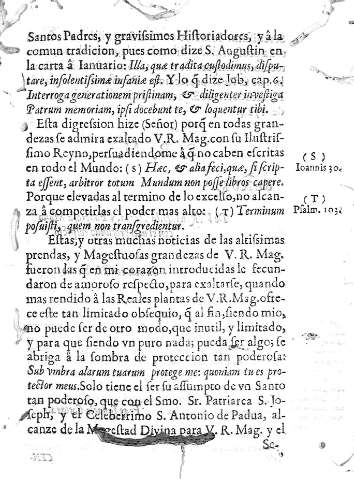 Santos Padres, y gravissimos Historiadores, y â la
comun tradicion, pues como dize S. Augustin en
la carta â Ianuario: Illa, quæ tradita custodimus, dispu-
tare, insolentissimæ insaniæ est. Y lo q̃ dize Job, cap. 6.
Interroga generationem pristinam, & diligenter investiga
Patrum memoriam, ipsi docebunt te, & loquentur tibi.
Esta digression hize (Señor) porq̃ en todas gran-
dezas se admira exaltado V. R. Mag. con su Ilustris-
simo Reyno, persuadiendome â q̃ no caben escritas
en todo el Mundo: (S) Hæc, & alia feci, quæ, si scrip-
ta essent, arbitror totum Mundum non posse libros capere.
Porque elevadas al termino de lo excelso, no alcan-
za â competirlas el poder mas alto: (T) Terminum
posuisti, quem non transgredientur.
(S)
Ioannis 30.
(T)
Psalm. 103.
Estas, y otras muchas noticias de las altissimas
prendas, y Magestuosas grandezas de V. R. Mag.
fueron las q̃ en mi corazon introducidas le fecun-
daron de amoroso respecto, para exaltarse, quando
mas rendido â las Reales plantas de V. R. Mag. ofre-
ce este tan limitado obsequio, q̃ al fin, siendo mio,
no puede ser de otro modo, que inutil, y limitado,
y para que siendo vn puro nada; pueda ser algo; se
abriga â la sombra de proteccion tan poderosa:
Sub vmbra alarum tuarum protege me: quoniam tu es pro-
tector meus. Solo tiene el ser su assumpto de vn Santo
tan poderoso, que con el Smo. Sr. Patriarca S. Jo-
seph, y el Celeberrimo S. Antonio de Padua, al-
canze de la Magestad Divina para V. R. Mag. y el
Se-